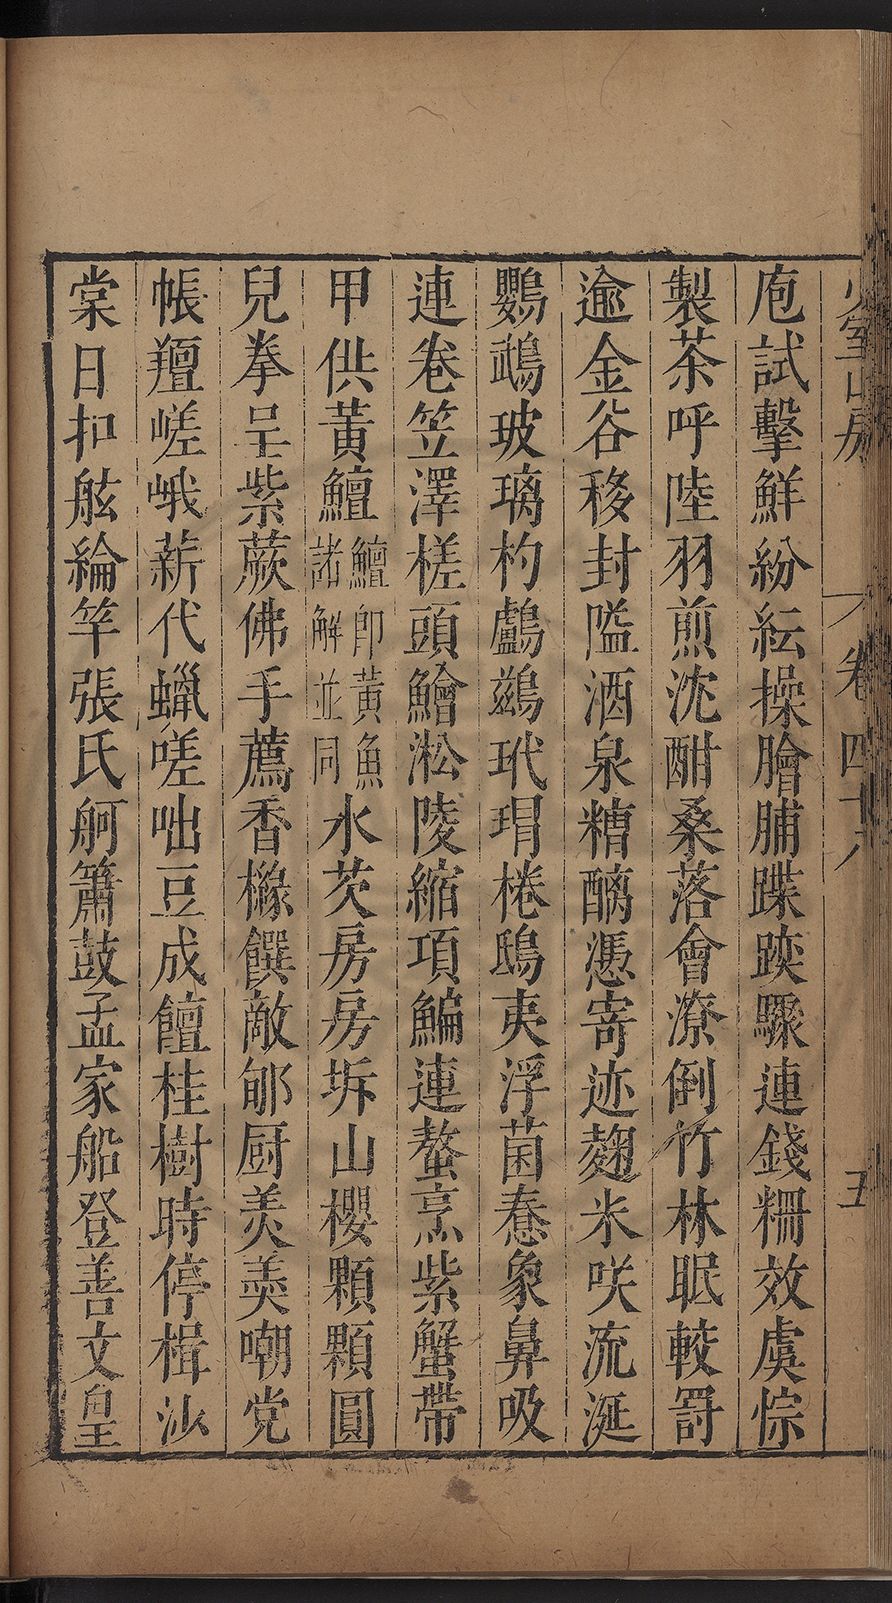 少室山房 卷四十六 五
庖試擊鮮紛紜操膾脯蹀𨁂驟連錢粣效虞悰
製茶呼陸羽煎沈酣桑落會潦倒竹林眠較罸
逾金谷移封隘酒泉糟醨憑寄迹麴米咲流涎
鸚鵡玻瓈杓鸕鷀玳瑁棬鴟夷浮菌蠢象鼻吸
連卷笠澤槎頭鱠淞陵縮項鯿連螯烹紫蟹帶
甲供黃鱣鱣即黃魚諸解並同水芡房房坼山櫻顆顆圓
兒拳呈紫蕨佛手薦香櫞饌敵郇厨羙羮嘲党
帳羶嵯峨薪代蠟嗟咄豆成饘桂樹時停楫沙
棠日扣舷綸竿張氏舸簫鼓孟家船登善文皇